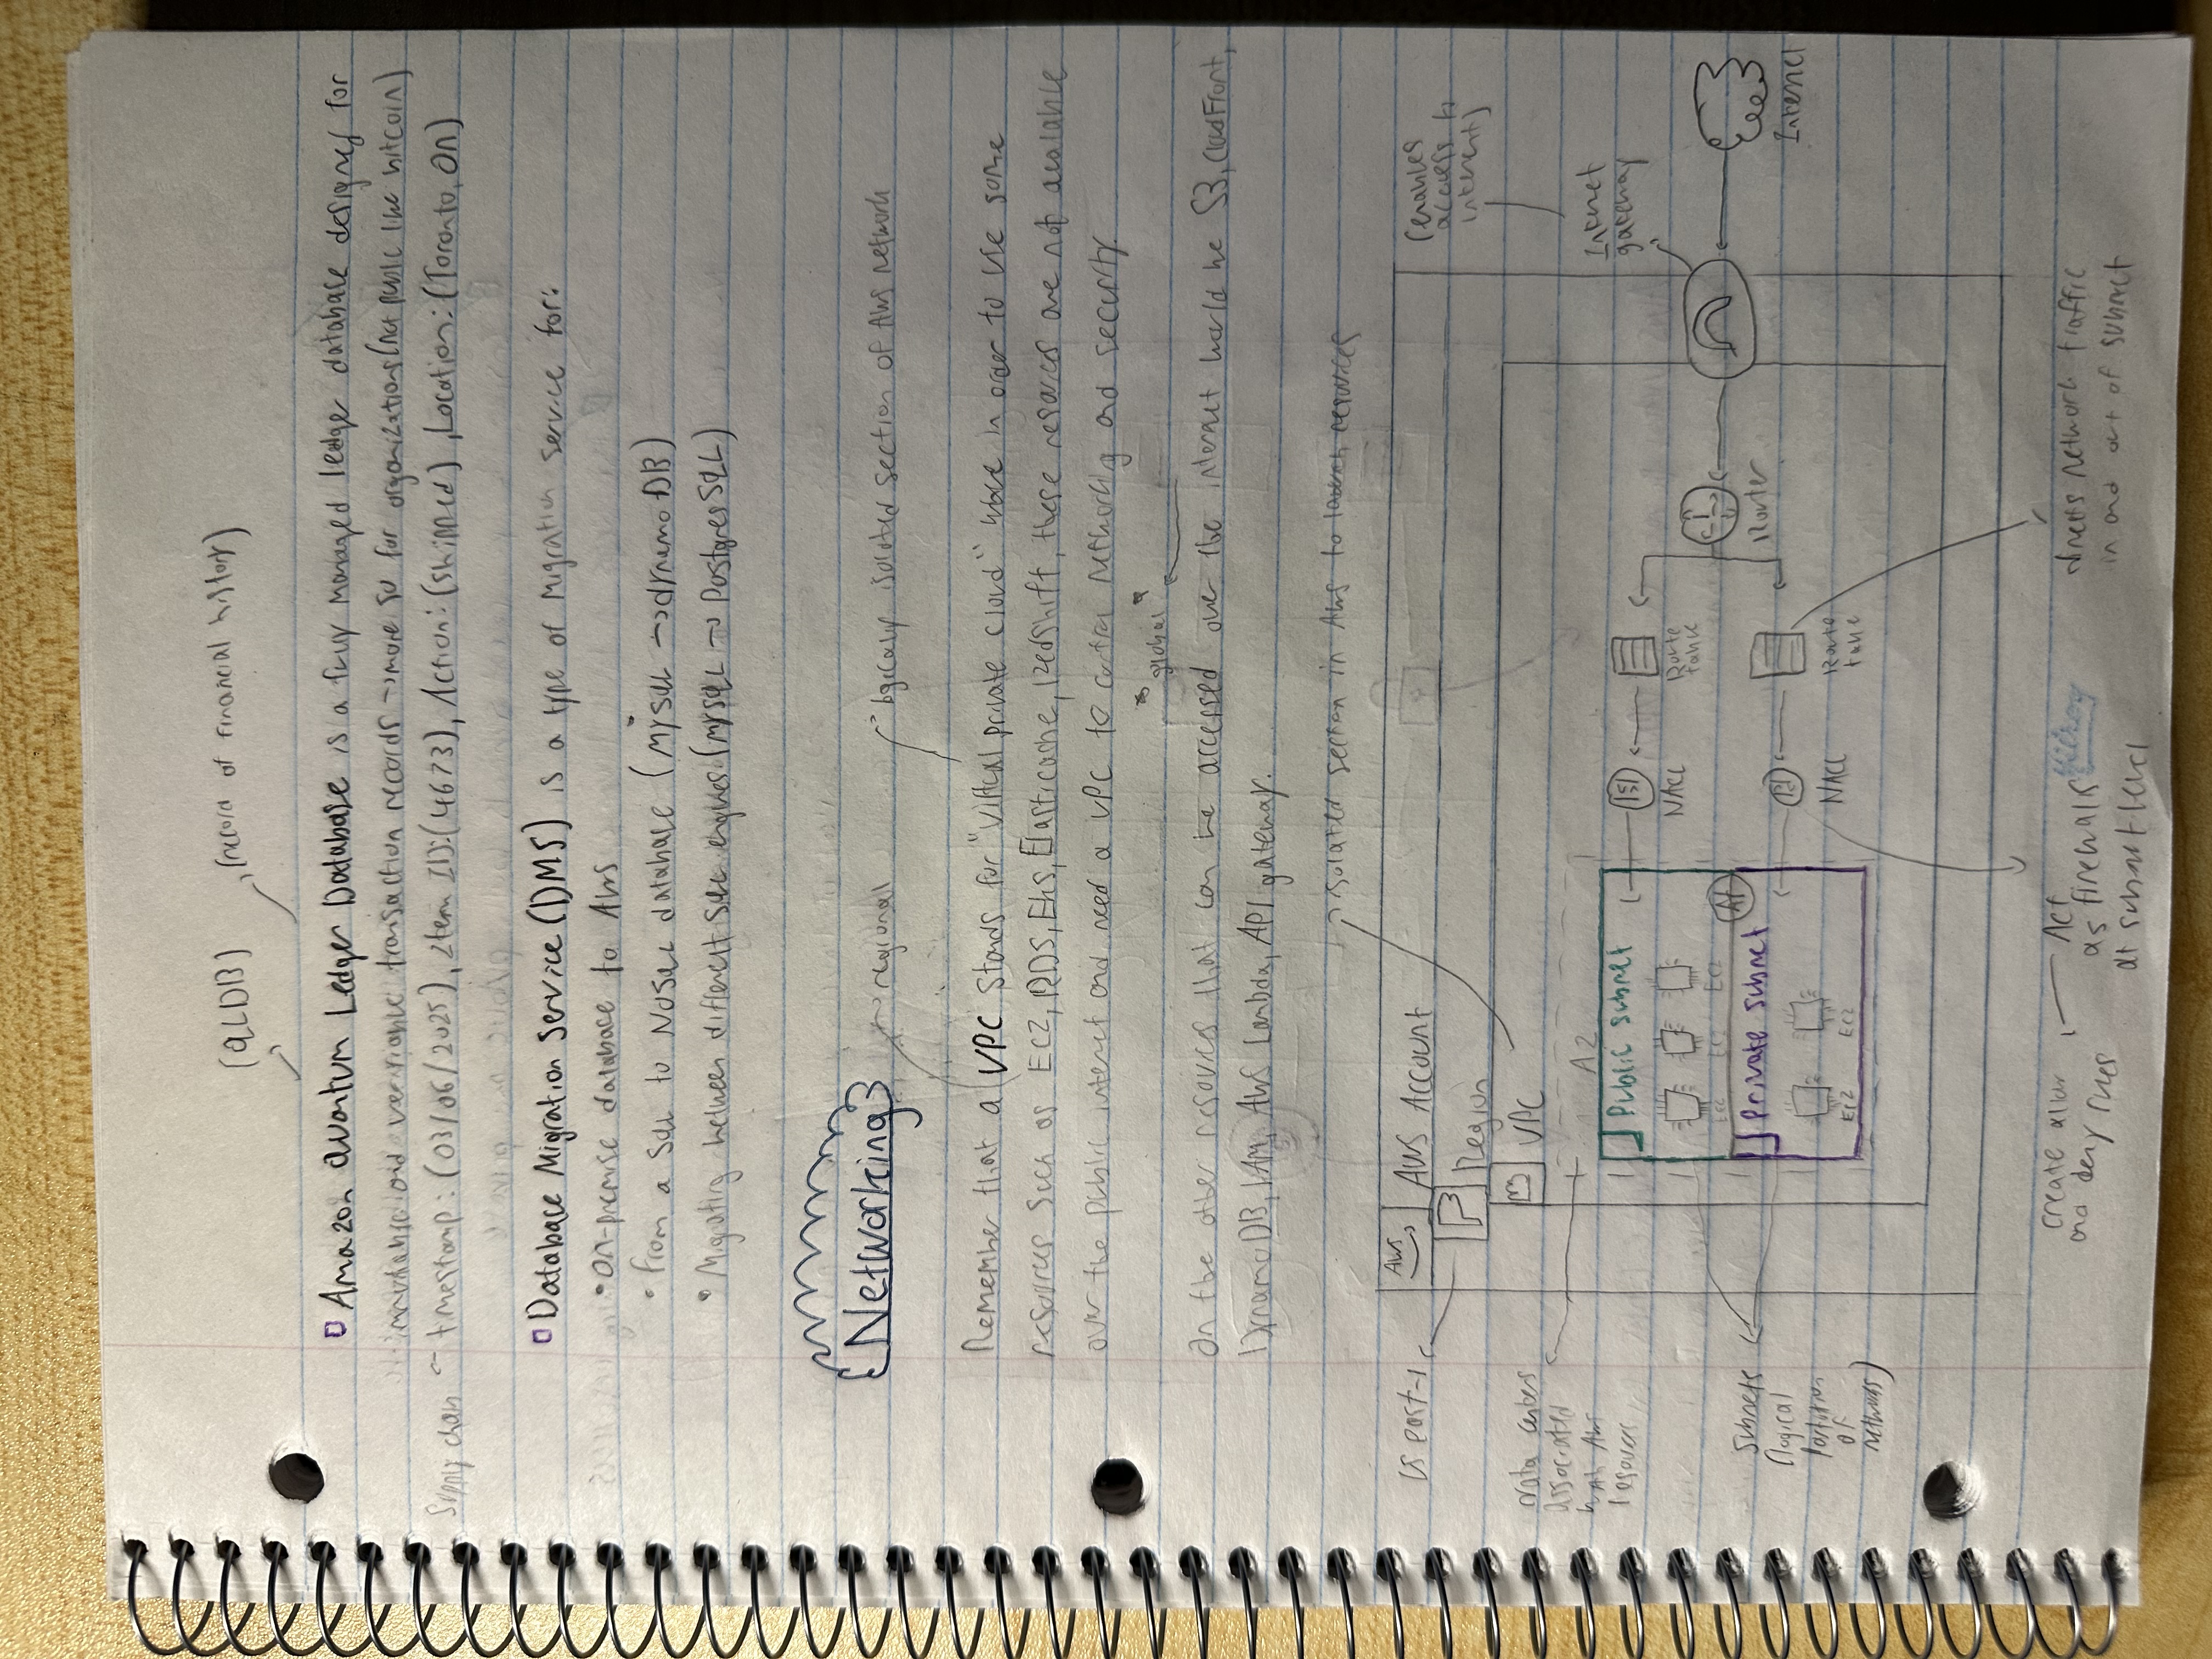 (QLDB)
(record of financial history)
Amazon Quantum Ledger Database is a fully managed ledger database designed for
immutable and verifiable transaction records → more so for organizations (not public like bitcoin)
Supply chain ← timestamp: (03/06/2025), Item ID: (4673), Action: (shipped), Location: (Toronto, ON)
Database Migration Service (DMS) is a type of migration service for:
• On-premise database to AWS
• From a SQL to NoSQL database (MySQL → dynamo DB)
• Migrating between different SQL engines (MySQL → Postgres SQL)
Networking
→ regional
logically isolated section of AWS network
Remember that a VPC stands for "Virtual private cloud" where in order to use some
resources such as EC2, RDS, EKS, Elasticache, Redshift, these resources are not available
over the public internet and need a VPC to control networking and security.
"global"
On the other resources that can be accessed over the internet would be S3, CloudFront,
DynamoDB, IAM, AWS Lambda, API gateway.
→ isolated section in AWS to launch resources
AWS
AWS Account
us east-1
Region
VPC
(enables
access to
internet)
Data centers
associated
with AWS
resources
AZ
Public subnet
EC2 EC2 EC2
NACL
Route
table
Internet
gateway
Private subnet
EC2 EC2
NACL
Route
table
Router
Internet
Subnets
(logical
partition
of
networks)
create allow
and deny rules
Act
as firewalls
at subnet level
directs network traffic
in and out of subnet